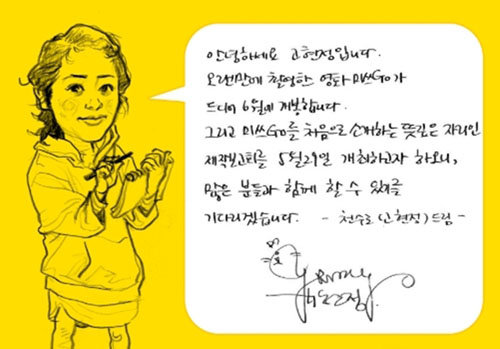 안녕하세요 고현정입니다.
오랜만에 촬영한 영화 미쓰GO가
드디어 6월에 개봉합니다.
그리고 미쓰GO를 처음으로 소개하는 뜻깊은 자리인
제작보고회를 5월21일 개최하고자 하오니,
많은 분들과 함께 할 수 있기를
기다리겠습니다. - 천수로 (고현정) 드림 -